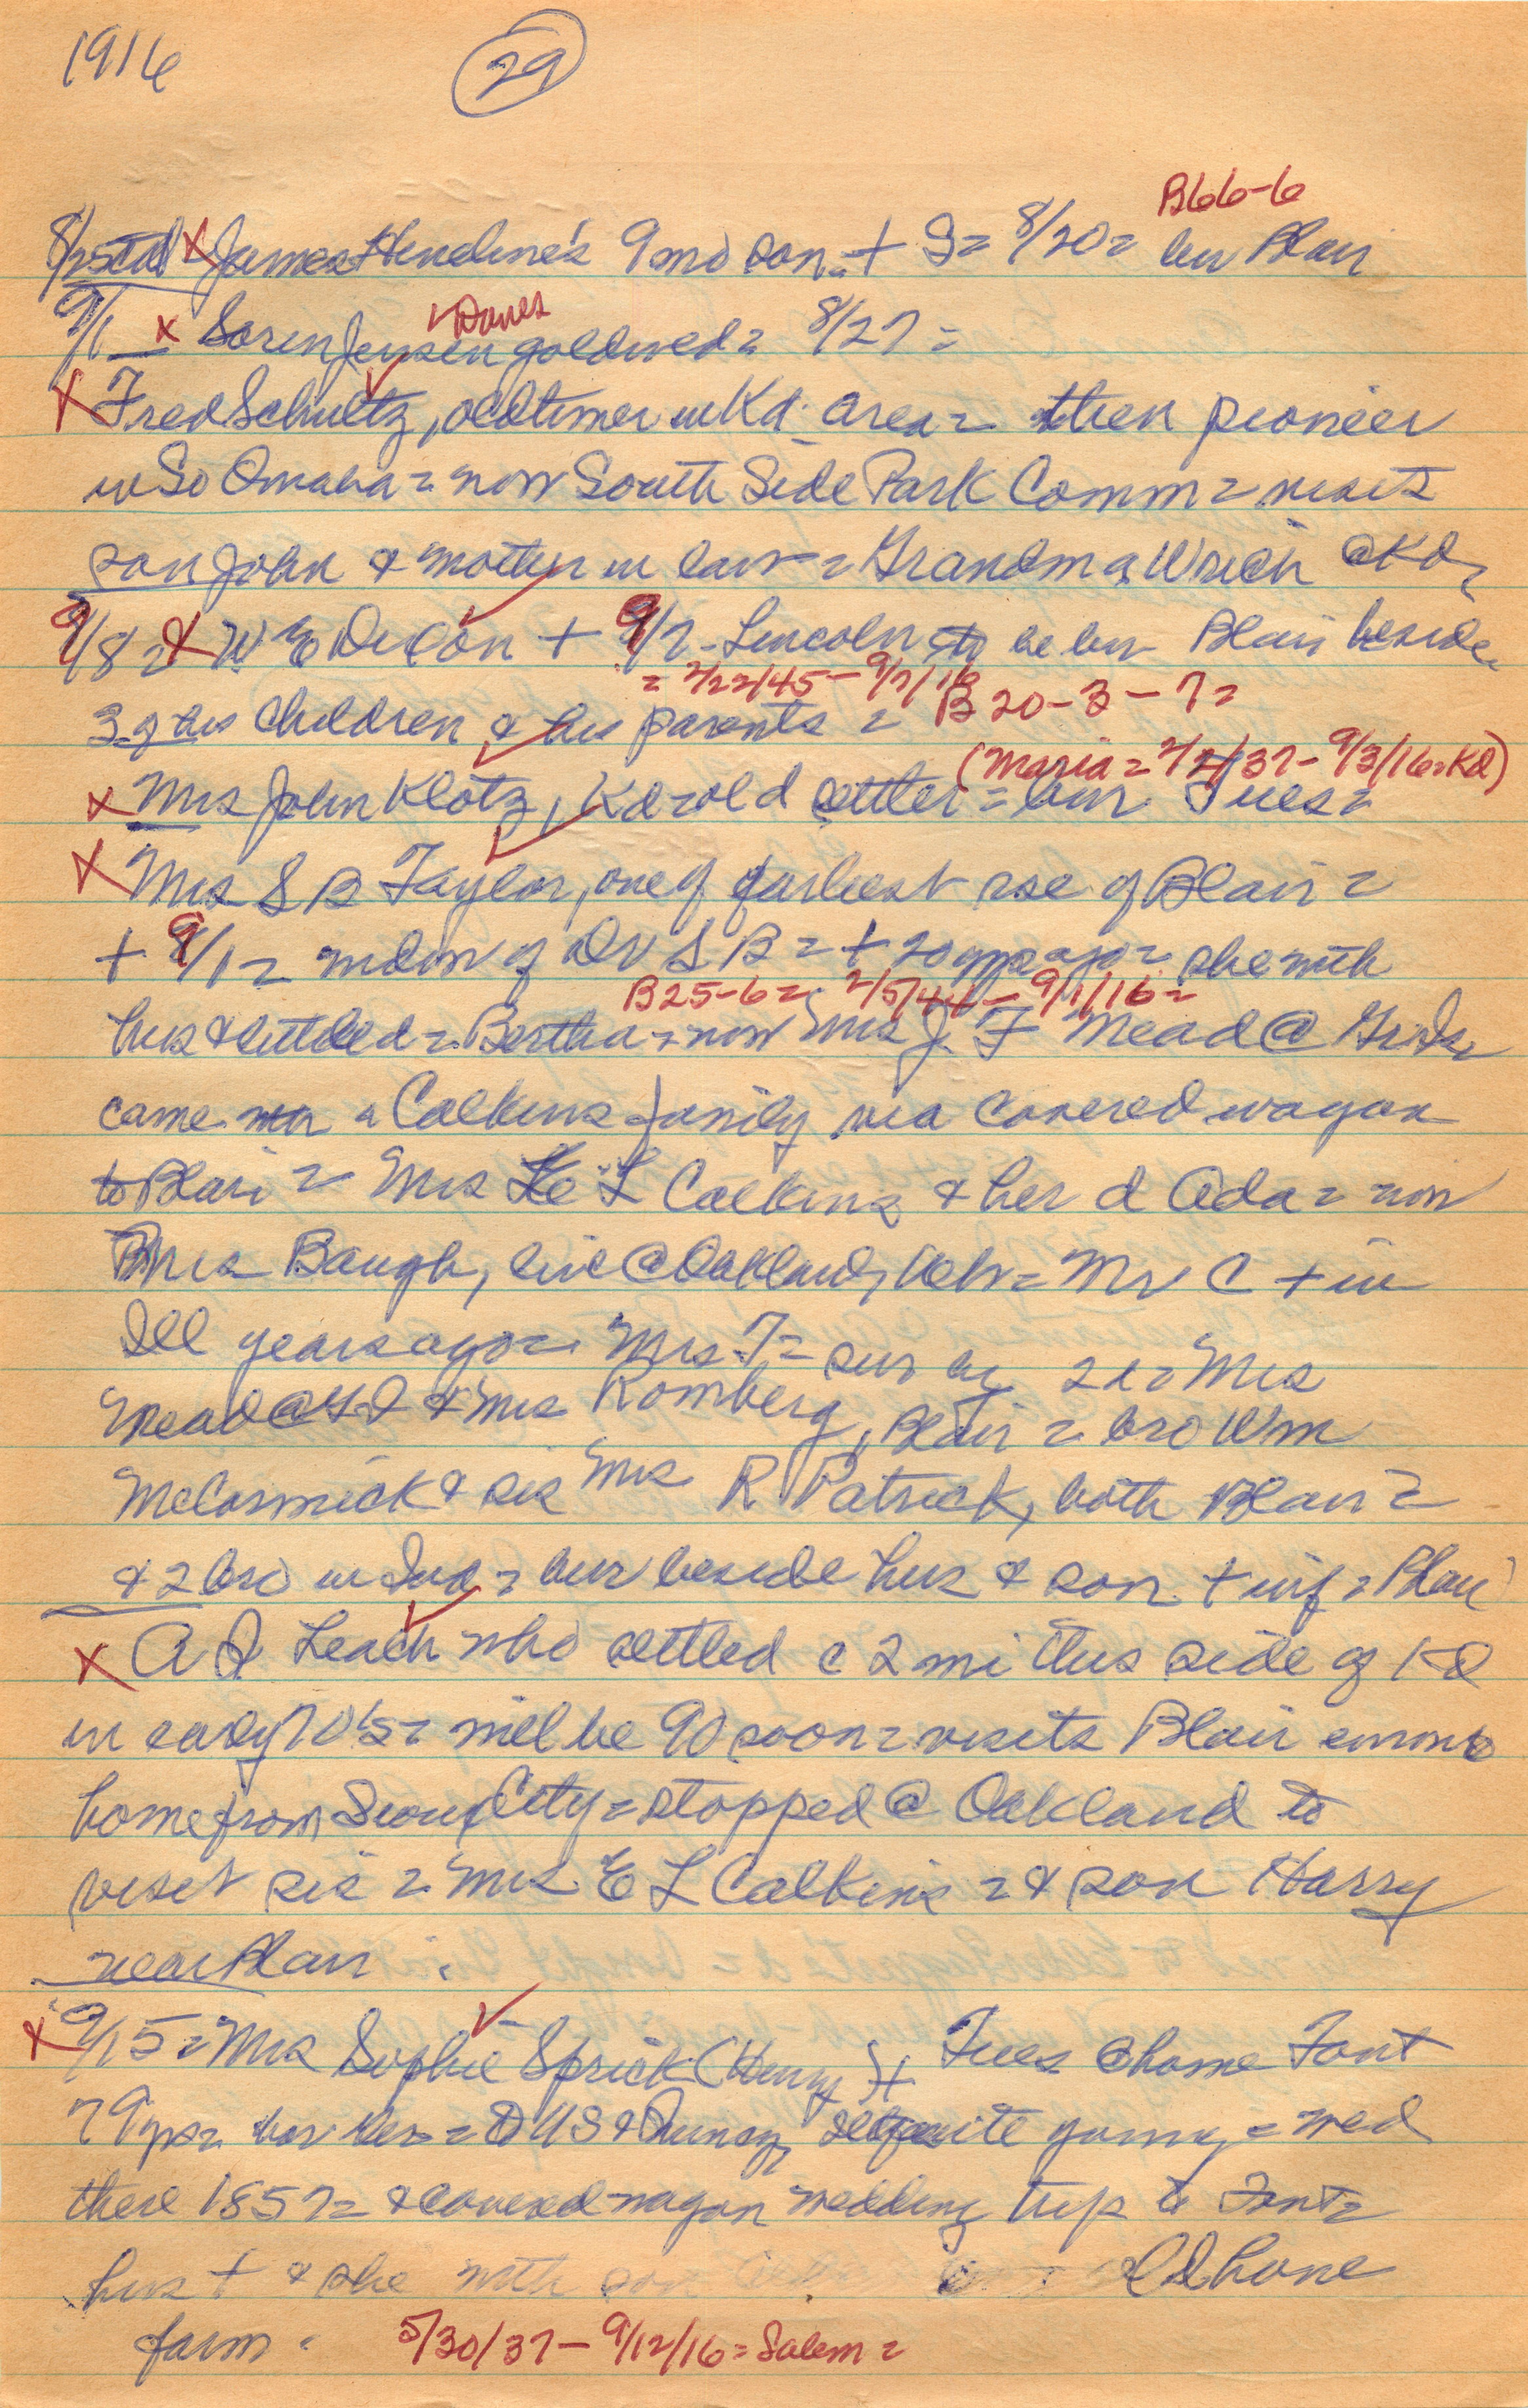 1916 29
B66-6
8/25 X James Hendine's 9 mo son = + S = 8/20 = bur Blair
✓ Danes
9/1 X Soren Jensen goldwed = 8/27 =
X Fred Schultz, oldtimer in Kd. area = then pioneer
in So Omaha = now South Side Park Comm = visits
son John & mother in law = Grandma Wrich @ Kd =
9/8 = X W E Dixon + 9/2 - Lincoln to be bur Blair beside
= 2/22/45 - 9/2/16 B 20-3-7 =
3 of his children & his parents =
(Maria = 2/2/37 - 9/3/16 = Kd)
X Mrs John Klotz, Kd = old settler = bur Tues =
X Mrs S B Taylor, one of earliest rse of Blair =
+ 9/1 = widow of Dr S B = + 20 yrs ago = she with
B25-6 = 2/5/44 - 9/1/16 =
hus & little d = Bertha = now Mrs J. F Mead @ Gr Is =
came a Calkins family via covered wagon
to Blair = Mrs E L Calkins & her d Ada = now
Mrs Baugh, live @ Oakland, Neb = Mr C + in
Ill years ago = Mrs T = sur by 2 d = Mrs
Mead @ G I & Mrs Romberg, Blair = bro Wm
McCormick & sis Mrs R Patrick, both Blair =
& 2 bro in Ind = bur beside hus & son + inf = Blair
X A I Leach who settled c 2 mi this side of Kd
in early 70's = will be 90 soon = visits Blair enroute
home from Sioux City = stopped @ Oakland to
visit sis = Mrs. E L Calkins = & son Harry
near Blair .
X 9/15 = Mrs Sophie Sprick (Henry) + Tues @ home Font
79 yrs = bor Ger = to US & Quincy, Ill quite young = wed
there 1857 = & covered-wagon wedding trip to Font =
hus + & she with son home
farm . 5/30/37 - 9/12/16 = Salem =